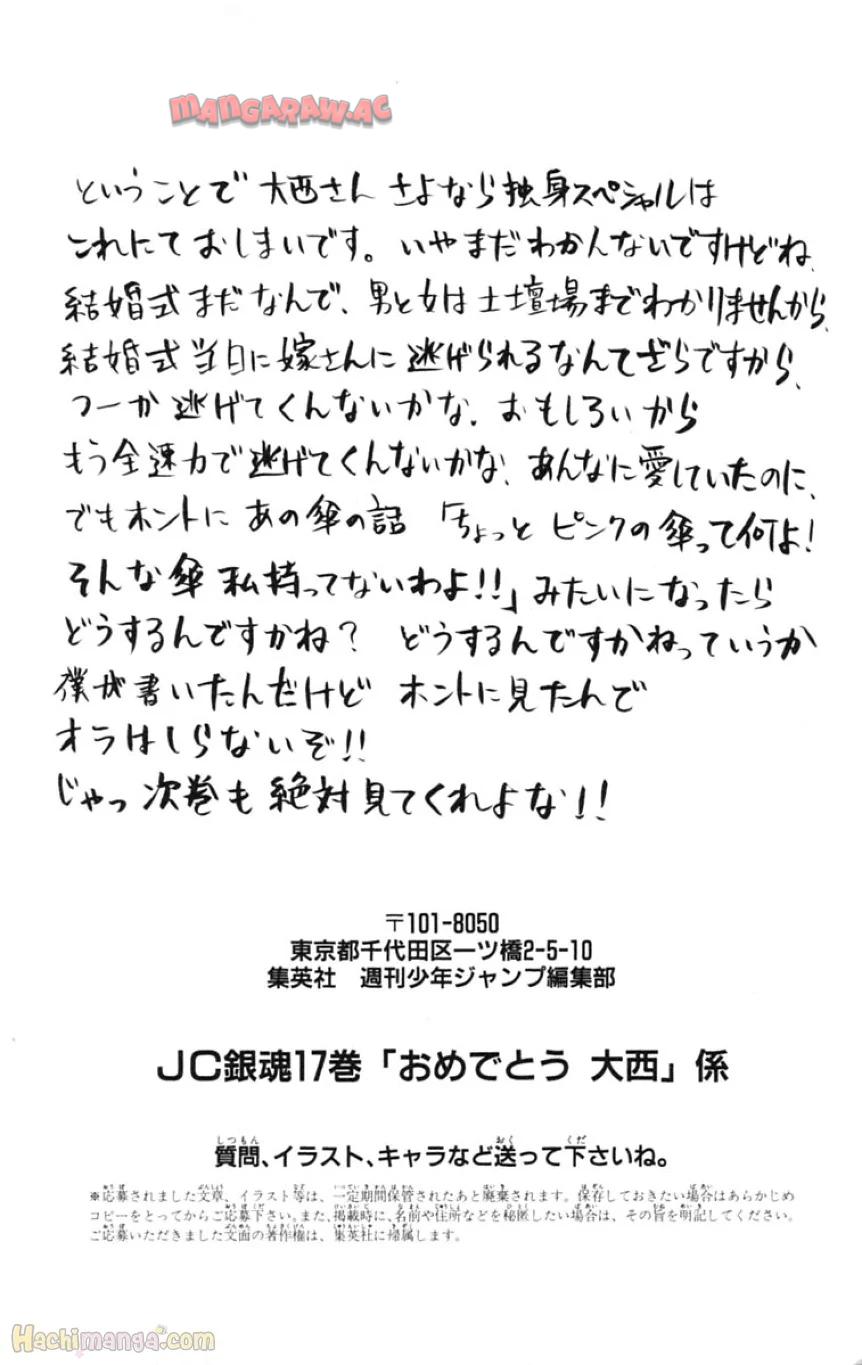 MANGARAW.AC
ということで 大西さん さよなら独身スペシャルは
これにて おしまいです。いやまだ わかんないですけどね、
結婚式まだなんで、男と女は土壇場までわかりませんから、
結婚式当日に嫁さんに逃げられるなんてざらですから、
つーか 逃げてくんないかな、おもしろいから
もう全速力で逃げてくんないかな、あんなに愛していたのに、
でもホントに あの傘の話 「ちょっと ピンクの傘って何よ!
そんな傘 私持ってないわよ!!」みたいになったら
どうするんですかね? どうするんですかねっていうか
僕が書いたんだけど ホントに見たんで
オラはしらないぞ!!
じゃっ 次巻も 絶対見てくれよな!!
〒101-8050
東京都千代田区一ツ橋2-5-10
集英社 週刊少年ジャンプ編集部
JC銀魂17巻「おめでとう 大西」係
質問、イラスト、キャラなど送って下さいね。
※応募されました文章、イラスト等は、一定期間保管されたあと廃棄されます。保存しておきたい場合はあらかじめ
コピーをとってからご応募下さい。また、掲載時に、名前や住所などを秘匿したい場合は、その旨を明記してください。
ご応募いただきました文面の著作権は、集英社に帰属します。
Hachimanga.com